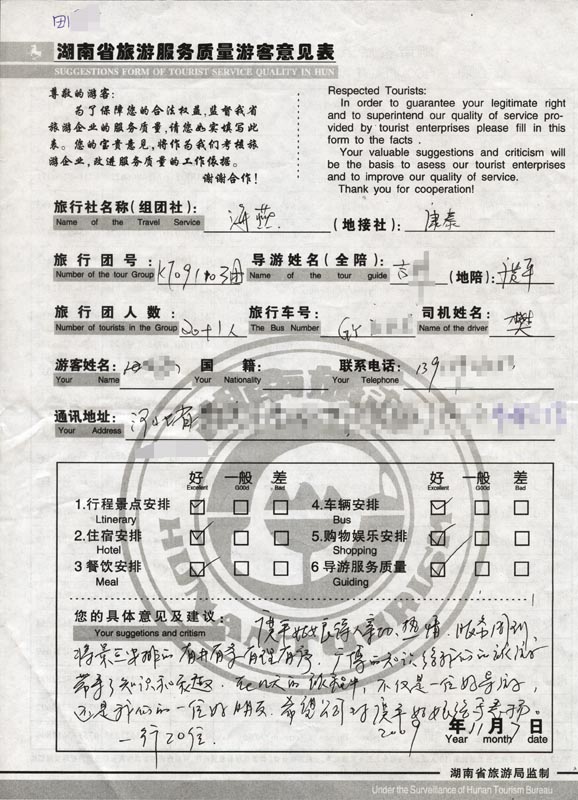 湖南省旅游服务质量游客意见表
SUGGESTIONS FORM OF TOURIST SERVICE QUALITY IN HUN
尊敬的游客:
为了保障您的合法权益,监督我省
旅游企业的服务质量,请您如实填写此
表。您的宝贵意见,将作为我们考核旅
游企业,改进服务质量的工作依据。
谢谢合作!
Respected Tourists:
In order to guarantee your legitimate right
and to superintend our quality of service pro-
vided by tourist enterprises please fill in this
form to the facts .
Your valuable suggestions and criticism will
be the basis to asess our tourist enterprises
and to improve our quality of service.
Thank you for cooperation!
旅行社名称(组团社): 海燕 (地接社): 康泰
Name of the Travel Service
旅行团号: 导游姓名(全陪) (地陪)
Number of the tour Group Name of the tour guide
旅行团人数: 20+1人 旅行车号: 司机姓名: 樊
Number of tourists in the Group The Bus Number Name of the driver
游客姓名: 国籍: 联系电话: 139
Your Name Your Nationality Your Telephone
通讯地址: 河北省
Your Address
好 一般 差 好 一般 差
Excellent Good Bad Excellent Good Bad
1.行程景点安排 4.车辆安排
Ltinerary Bus
2.住宿安排 5.购物娱乐安排
Hotel Shopping
3 餐饮安排 6 导游服务质量
Meal Guiding
您的具体意见及建议:
Your suggetions and critism
热情.服务周到,
将景点安排的有井有条有理有序.广博的知识给我们的旅途
带来了知识和乐趣.在几天的旅程中,不仅是一位好导游,
还是我们的一位好朋友.希望公司对
一行20位.
2009年11月3日
Year month date
湖南省旅游局监制
Under the Surveillance of Hunan Tourism Bureau
HUNAN TOURISM